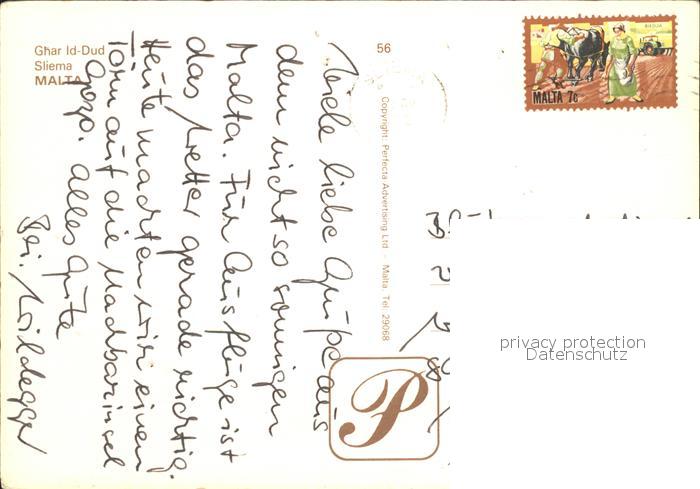 Għar Id-Dud
Sliema
MALTA
56
BIEDJA
MALTA 7c
Copyright: Perfecta Advertising Ltd - Malta. Tel. 29068
Viele liebe Grüße aus
dem nicht so sonnigen
Malta. Für Ausflüge ist
das Wetter gerade richtig.
Heute machten wir einen
Törn auf die Nachbarinsel
Gozo. Alles Gute
P
privacy protection
Datenschutz